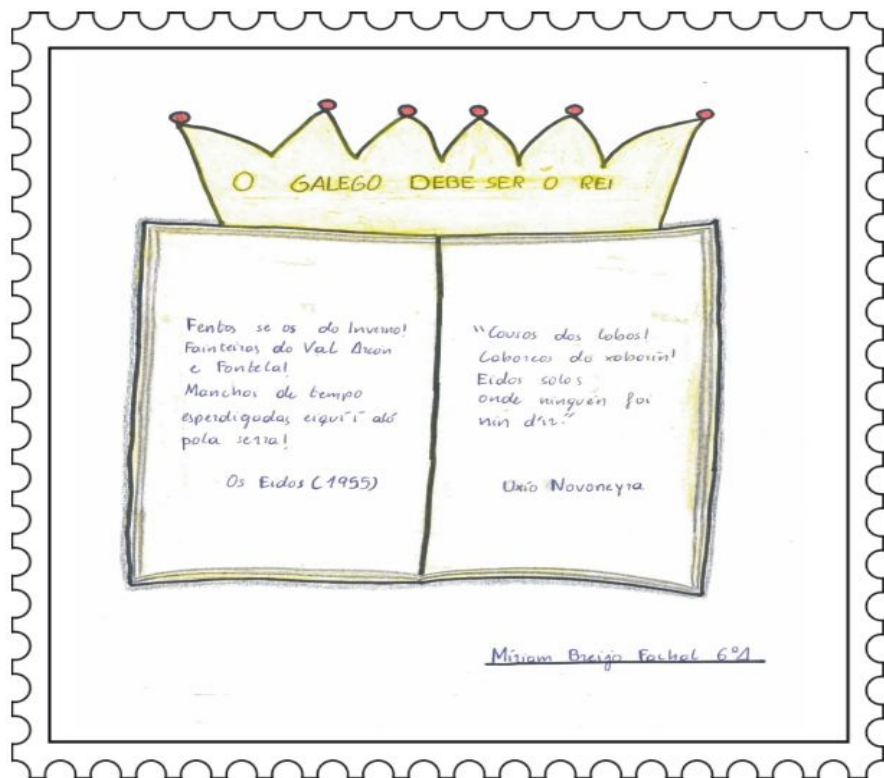 O GALEGO DEBE SER O REI
Fentos se os do Inverno!
Fainteiras do Val Arcon
e Fontela!
Manchos de tempo
esperdigadas eiquí i aló
pola serra!
Os Eidos (1955)
"Cousos dos lobos!
Caborcos do xabarín!
Eidos solos
onde ninguén foi
nin d'ir."
Uxío Novoneyra
Miriam Breijo Fachal 6ºA